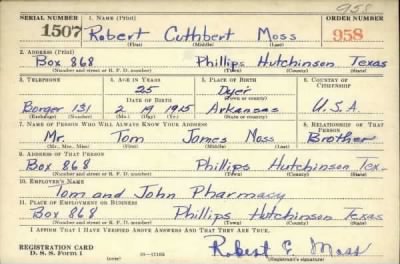 958
SERIAL NUMBER 1. NAME (Print) ORDER NUMBER
1507 Robert Cuthbert Moss 958
(First) (Middle) (Last)
2. ADDRESS (Print)
Box 868 Phillips Hutchinson Texas
(Number and street or R. F. D. number) (Town) (County) (State)
3. TELEPHONE 4. AGE IN YEARS 5. PLACE OF BIRTH 6. COUNTRY OF CITIZENSHIP
25 Dyer
DATE OF BIRTH (Town or county)
Borger 131 2 19 1915 Arkansas U.S.A.
(Exchange) (Number) (Mo.) (Day) (Yr.) (State or country)
7. NAME OF PERSON WHO WILL ALWAYS KNOW YOUR ADDRESS 8. RELATIONSHIP OF THAT PERSON
Mr. Tom Jones Moss Brother
(Mr., Mrs., Miss) (First) (Middle) (Last)
9. ADDRESS OF THAT PERSON
Box 868 Phillips Hutchinson Tex.
(Number and street or R. F. D. number) (Town) (County) (State)
10. EMPLOYER'S NAME
Tom and John Pharmacy
11. PLACE OF EMPLOYMENT OR BUSINESS
Box 868 Phillips Hutchinson Texas
(Number and street or R. F. D. number) (Town) (County) (State)
I AFFIRM THAT I HAVE VERIFIED ABOVE ANSWERS AND THAT THEY ARE TRUE.
REGISTRATION CARD Robert C. Moss
D. S. S. FORM 1 (Registrant's signature)